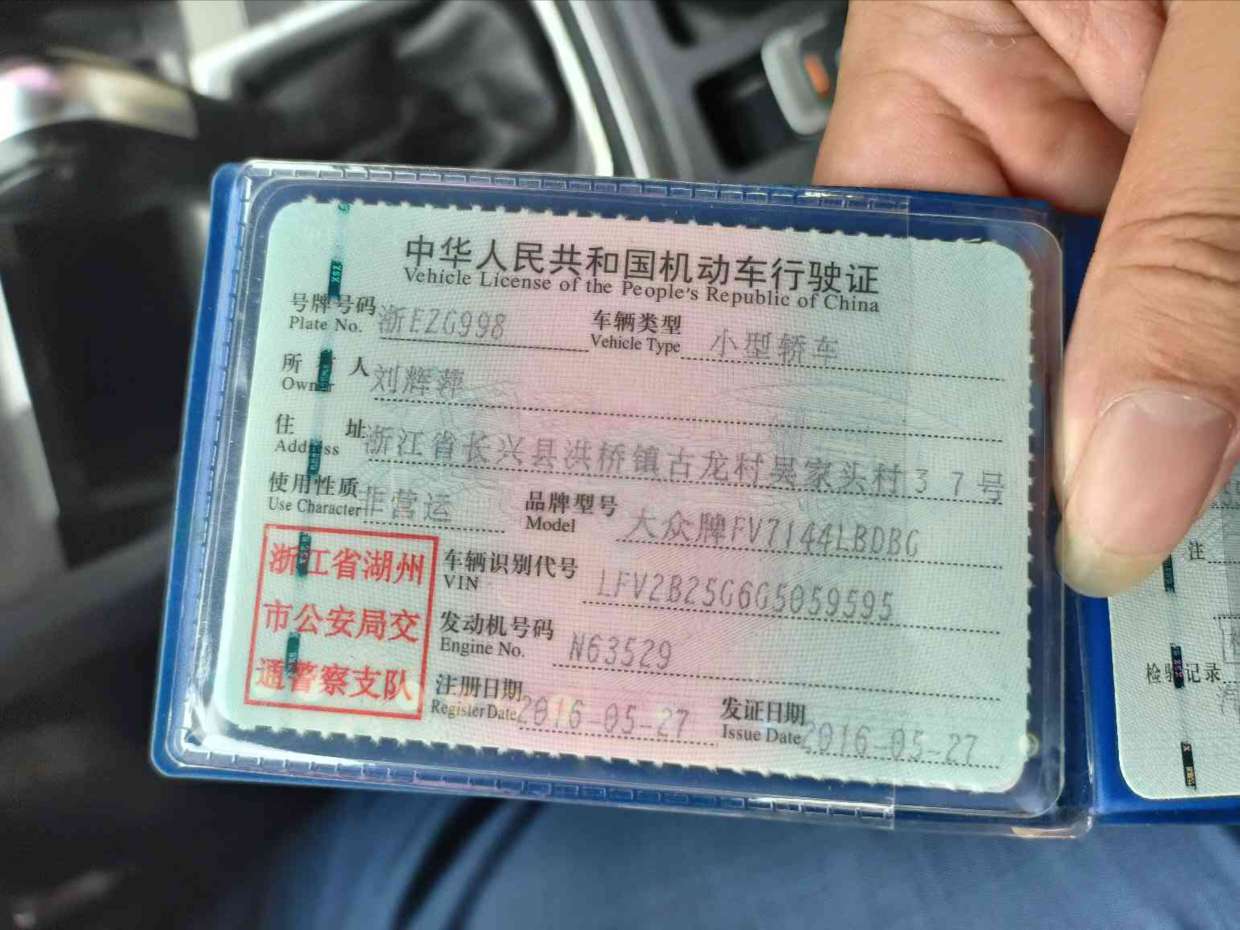 中华人民共和国机动车行驶证
Vehicle License of the People's Republic of China
号牌号码 浙EZG998 车辆类型 小型轿车
Plate No. Vehicle Type
所 人 刘辉萍
Owner
住 址 浙江省长兴县洪桥镇古龙村吴家头村37号
Address
使用性质 非营运 品牌型号 大众牌FV7144LBDBG
Use Character Model
浙江省湖州
市公安局交
通警察支队
车辆识别代号 LFV2B25G6G5059595
VIN
发动机号码 N63529
Engine No.
注册日期 2016-05-27 发证日期 2016-05-27
Register Date Issue Date
注
检验记录